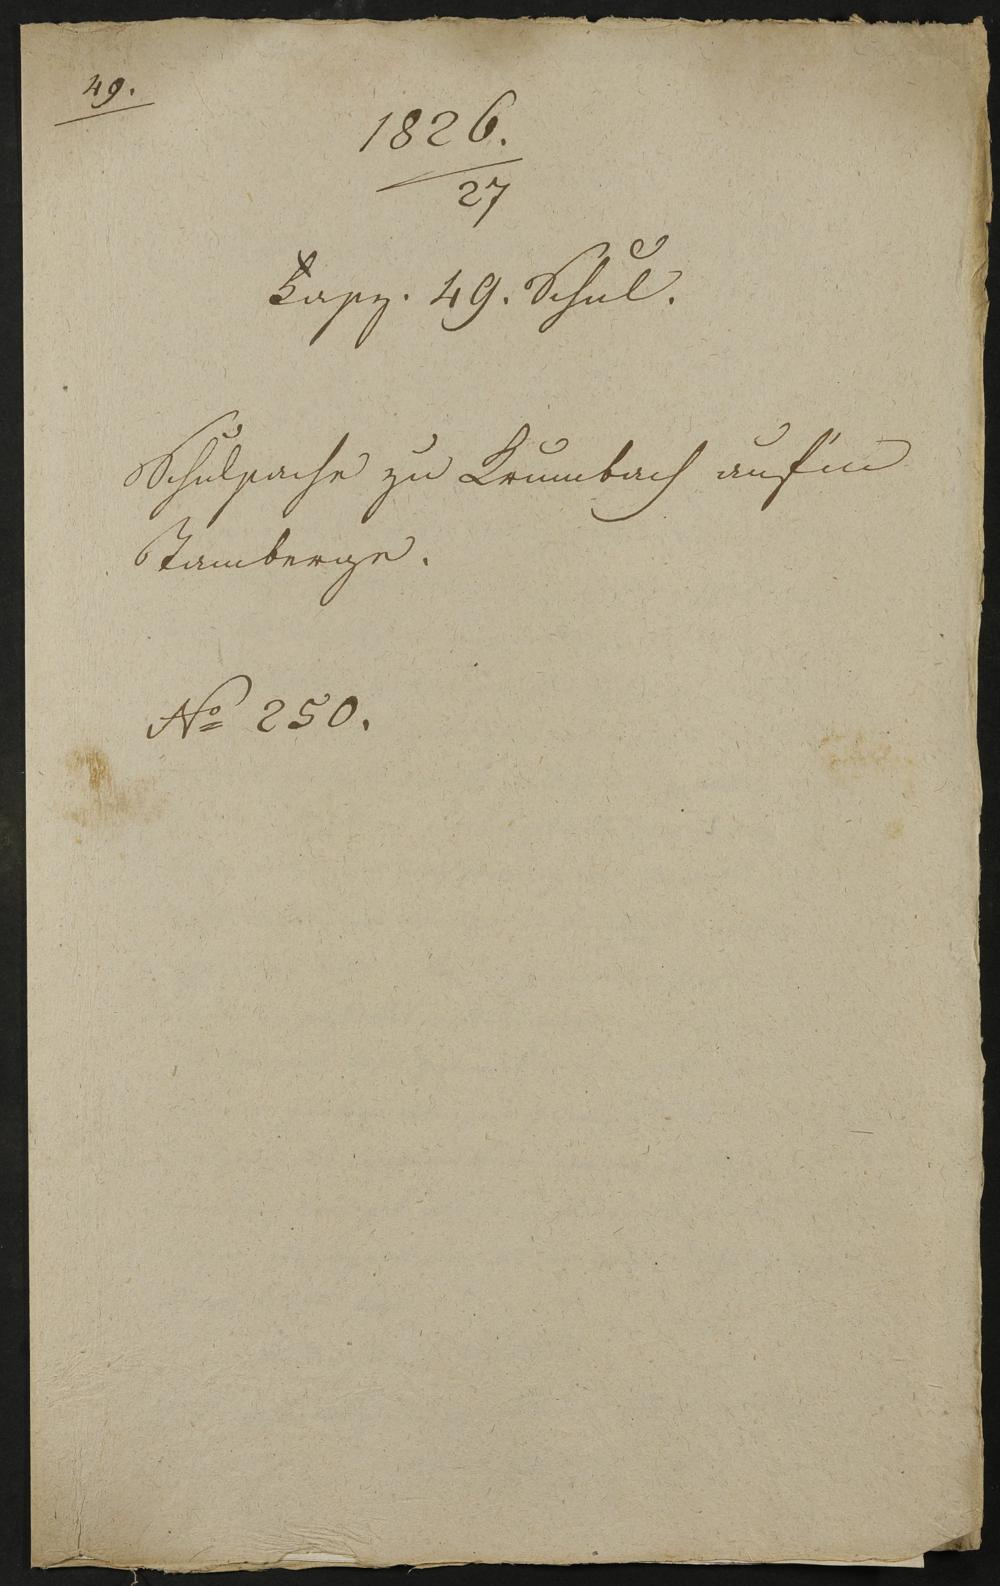 49.
1826.
27
49. Schul.
Schulsache zu Krumbach auf'm
Tamberge.
No 250.